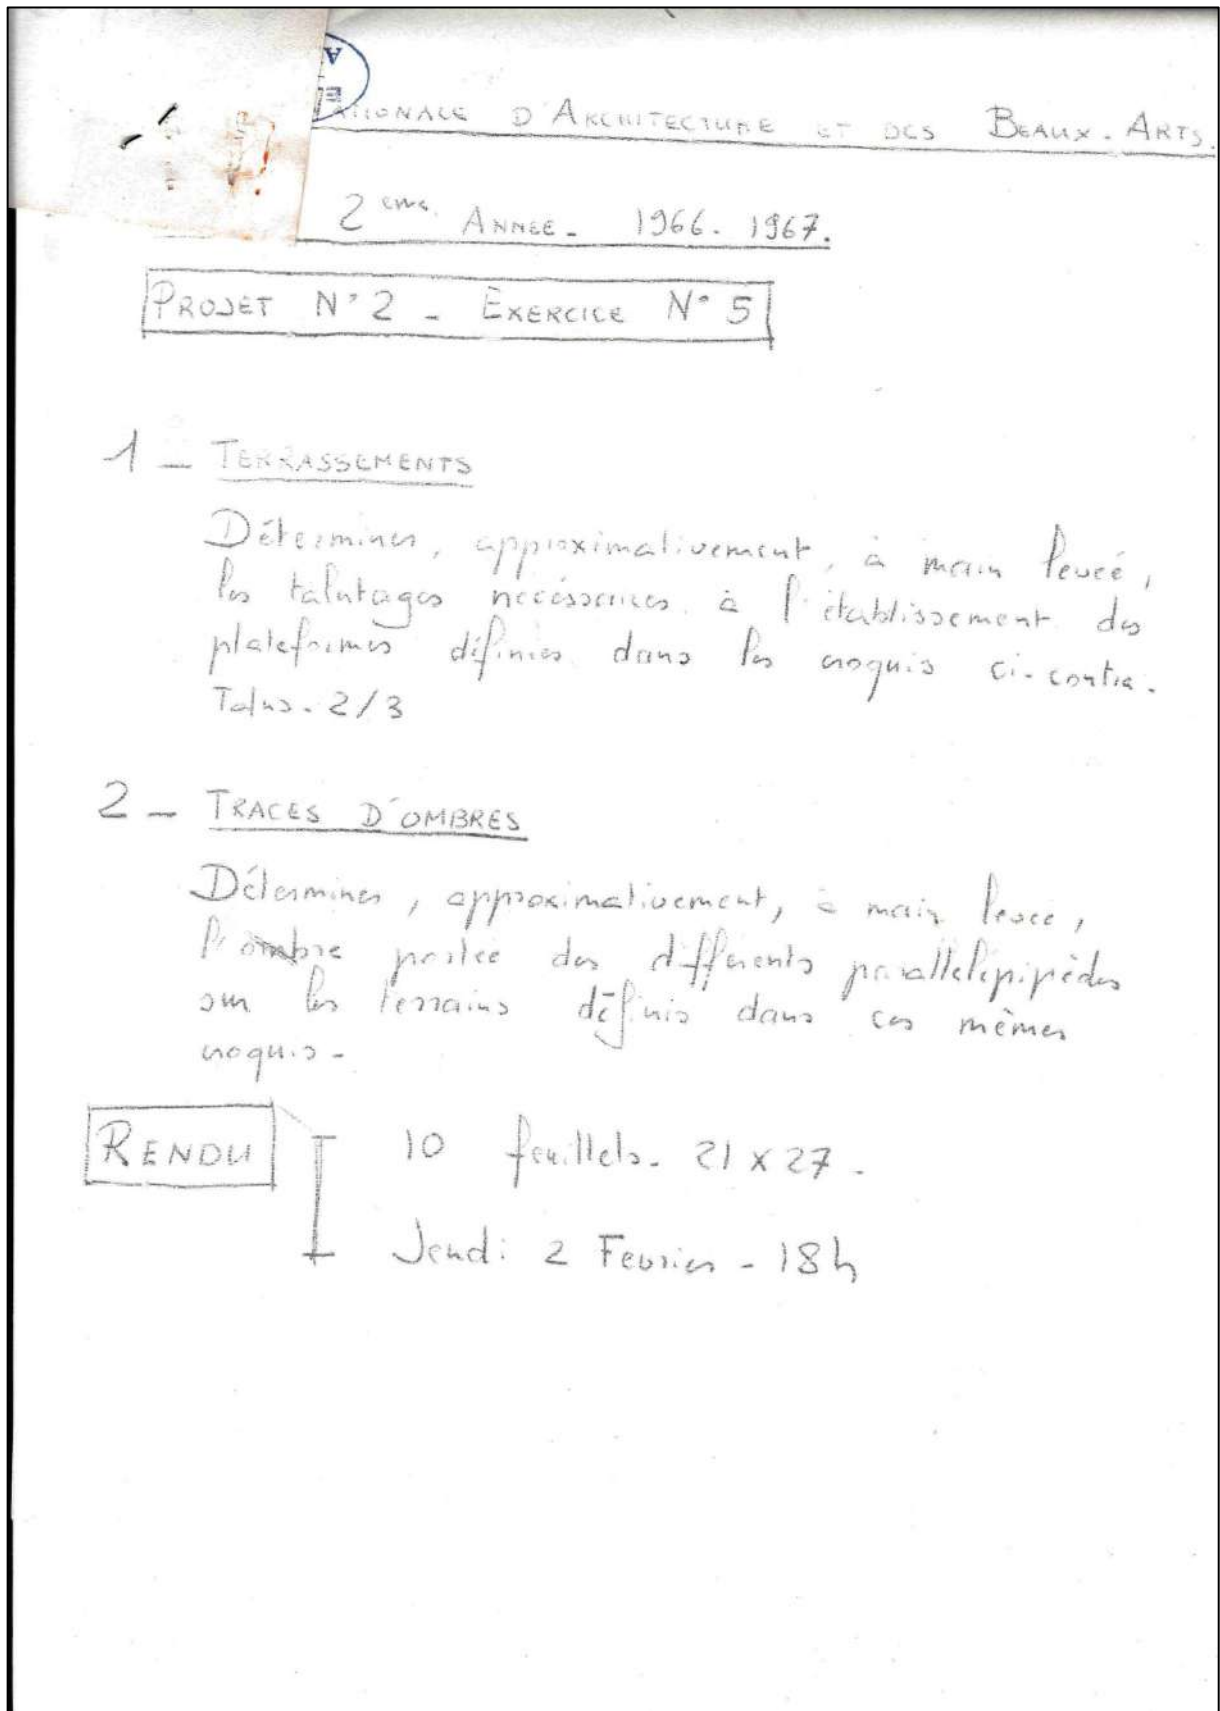 ATIONALE D'ARCHITECTURE ET DES BEAUX-ARTS.
2ème ANNEE - 1966-1967.
PROJET N°2 - EXERCICE N°5
1 - TERRASSEMENTS
Déterminer, approximativement, à main levée,
les talutages necéssaires à l'établissement des
plateformes définies dans les croquis ci-contre.
Talus - 2/3
2 - TRACES D'OMBRES
Déterminer, approximativement, à main levée,
l'ombre portée des différents parallelépipèdes
sur les terrains définis dans ces mêmes
croquis -
RENDU
10 feuillets - 21 x 27 -
Jeudi 2 Fevrier - 18h